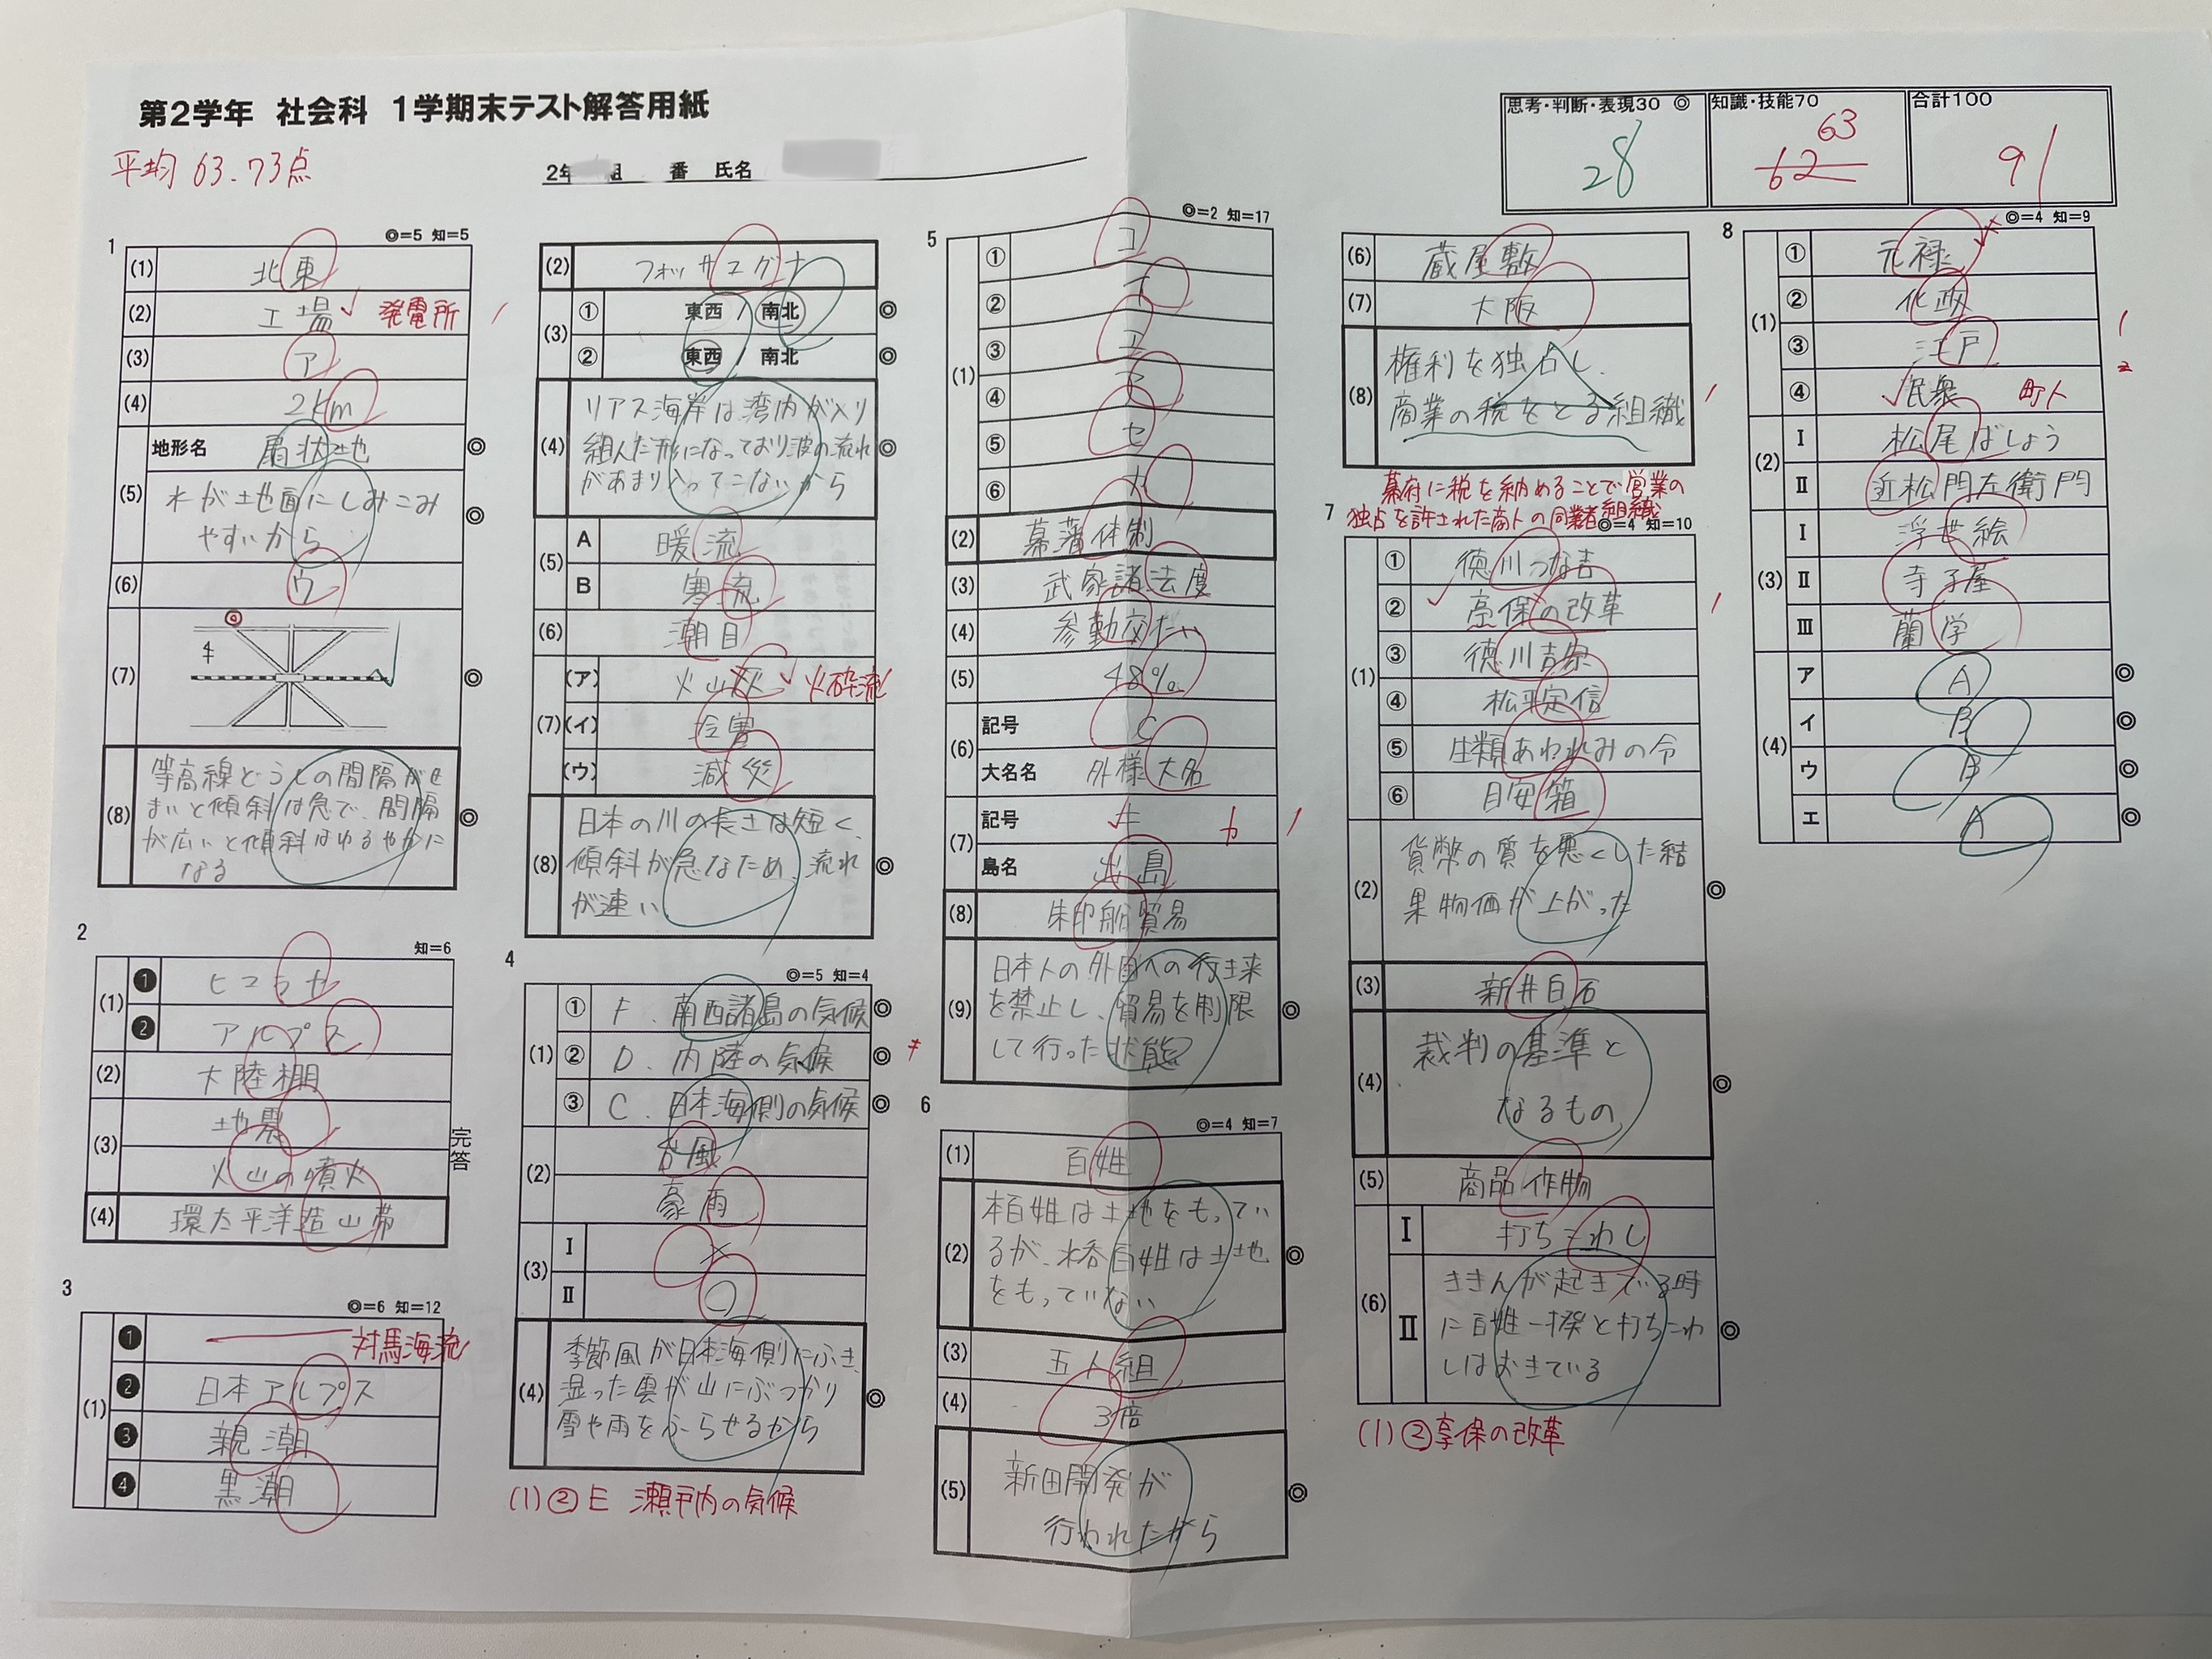 第2学年 社会科 1学期末テスト解答用紙
平均 63.73点
2年 組 番 氏名
思考・判断・表現30 ◎ 知識・技能70 合計100
28 62 63 91
1
◎=5 知=5
(1) 北東
(2) 工場 発電所
(3) ア
(4) 2km
(5) 地形名 扇状地 ◎
水が地面にしみこみ
やすいから ◎
(6) ウ
(7) ◎
(8) 等高線どうしの間隔がせ
まいと傾斜は急で、間隔 ◎
が広いと傾斜はゆるやかに
なる
2
知=6
(1) ❶ ヒマラヤ
❷ アルプス
(2) 大陸棚
(3) 地震
火山の噴火
完答
(4) 環太平洋造山帯
3
◎=6 知=12
(1) ❶ 対馬海流
❷ 日本アルプス
❸ 親潮
❹ 黒潮
(2) フォッサマグナ
(3) ① 東西 / 南北 ◎
② 東西 / 南北 ◎
(4) リアス海岸は湾内が入り
組んだ形になっており波の流れ ◎
があまり入ってこないから
(5) A 暖流
B 寒流
(6) 潮目
(7) (ア) 火山灰 火砕流
(イ) 冷害
(ウ) 減災
(8) 日本の川の長さは短く、
傾斜が急なため、流れ ◎
が速い
4
◎=5 知=4
(1) ① F. 南西諸島の気候 ◎
② D. 内陸の気候 ◎
③ C. 日本海側の気候 ◎
(2) 台風
豪雨
(3) Ⅰ ×
Ⅱ ○
(4) 季節風が日本海側にふき、
湿った雲が山にぶつかり ◎
雪や雨をふらせるから
(1)② E 瀬戸内の気候
5
◎=2 知=17
(1) ① コ
② イ
③ エ
④
⑤ セ
⑥ カ
(2) 幕藩体制
(3) 武家諸法度
(4) 参勤交たい
(5) 48%
(6) 記号 C
大名名 外様大名
(7) 記号 カ
島名 出島
(8) 朱印船貿易
(9) 日本人の外国への行き来
を禁止し、貿易を制限 ◎
して行った状態
6
◎=4 知=7
(1) 百姓
(2) 本百姓は土地をもってい
るが、水呑百姓は土地 ◎
をもっていない
(3) 五人組
(4) 3倍
(5) 新田開発が ◎
行われたから
(6) 蔵屋敷
(7) 大阪
(8) 権利を独占し、
商業の税をとる組織
幕府に税を納めることで営業の
独占を許された商人の同業者組織
7
◎=4 知=10
(1) ① 徳川つな吉
② 高保の改革
③ 徳川吉宗
④ 松平定信
⑤ 生類あわれみの令
⑥ 目安箱
(2) 貨幣の質を悪くした結
果物価が上がった ◎
(3) 新井白石
(4) 裁判の基準と ◎
なるもの
(5) 商品作物
(6) Ⅰ 打ちこわし
Ⅱ ききんが起きている時
に百姓一揆と打ちこわ ◎
しはおきている
(1)②享保の改革
8
◎=4 知=9
(1) ① 元禄
② 化政
③ 江戸
④ 民衆 町人
(2) Ⅰ 松尾ばしょう
Ⅱ 近松門左衛門
(3) Ⅰ 浮世絵
Ⅱ 寺子屋
Ⅲ 蘭学
(4) ア A ◎
イ B ◎
ウ B ◎
エ A ◎